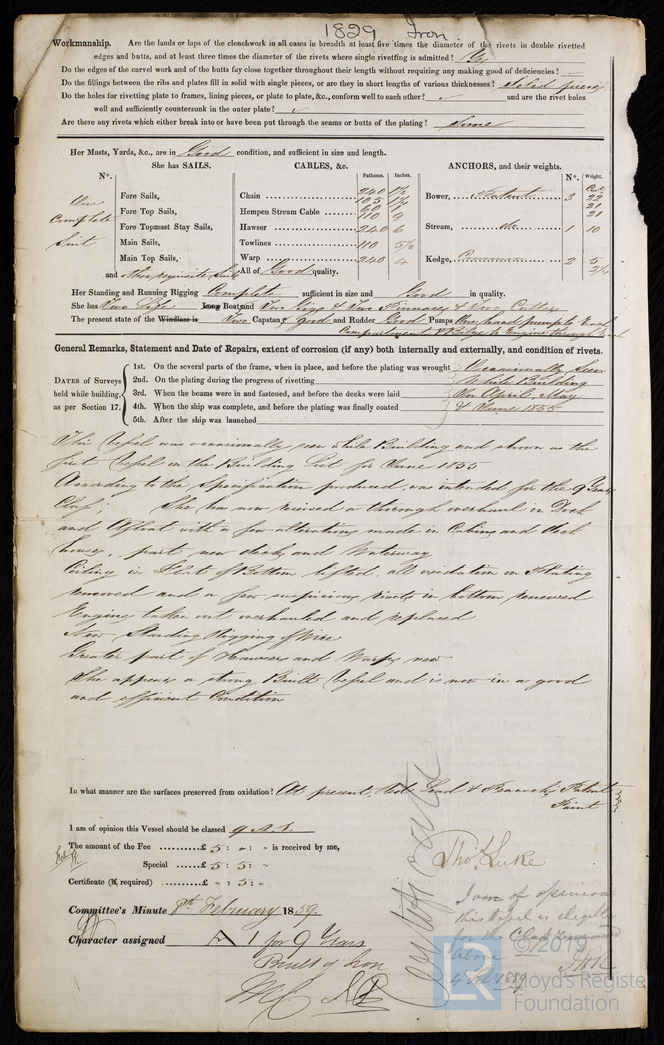 1829 Iron
Workmanship. Are the lands or laps of the clenchwork in all cases in breadth at least five times the diameter of the rivets in double rivetted
edges and butts, and at least three times the diameter of the rivets where single rivetting is admitted? Yes
Do the edges of the carvel work and of the butts fay close together throughout their length without requiring any making good of deficiencies? ✓
Do the fillings between the ribs and plates fill in solid with single pieces, or are they in short lengths of various thicknesses? Solid pieces
Do the holes for rivetting plate to frames, lining pieces, or plate to plate, &c., conform well to each other? ✓ and are the rivet holes
well and sufficiently countersunk in the outer plate? ✓
Are there any rivets which either break into or have been put through the seams or butts of the plating? Some
Her Masts, Yards, &c., are in Good condition, and sufficient in size and length.
She has SAILS. CABLES, &c. ANCHORS, and their weights.
N°. Fathoms. Inches. N°. Weight.
One Complete Suit
Fore Sails,
Fore Top Sails,
Fore Topmast Stay Sails,
Main Sails,
Main Top Sails,
and other requisite Sails
Chain 240 1½
105 1¼
Hempen Stream Cable 60
110 9
Hawser 240 6
Towlines 110 5½
Warp 240 4
All of Good quality.
Bower, Patent 3 22
21
21
Stream, do 1 10
Kedge, Common 2 5
2¼
Her Standing and Running Rigging Complete sufficient in size and Good in quality.
She has Two Life Long Boat and Two Gigs & Two Pinnaces & Two Cutters
The present state of the Windlass is Two Capstans good and Rudder Good Pumps One hand pump to Each
Compartment & Bilge to Engine through Each
General Remarks, Statement and Date of Repairs, extent of corrosion (if any) both internally and externally, and condition of rivets.
DATES of Surveys held while building, as per Section 17.
1st. On the several parts of the frame, when in place, and before the plating was wrought Occasionally seen
2nd. On the plating during the progress of rivetting While Building
3rd. When the beams were in and fastened, and before the decks were laid In April, May
4th. When the ship was complete, and before the plating was finally coated & June 1855
5th. After the ship was launched
This Vessel was occasionally seen while Building and shown as the
first Vessel in the Building List for June 1855
According to the Specification produced, was intended for the 9 Years
Class; She has now received a thorough overhaul in Dock
and Afloat with a few alterations made in Cabins and deck
houses, part new decks and Waterway
Ceiling in Flat of Bottom lifted, all oxidation on Plating
removed and a few suspicious rivets in bottom renewed
Engines taken out overhauled and replaced
New Standing Rigging of Wire
Greater part of Hawsers and Warps new
She appears a strong Built Vessel and is now in a good
and efficient Condition
In what manner are the surfaces preserved from oxidation? At present, Red Lead & Peacock's Patent
Paint
I am of opinion this Vessel should be classed 9 A.1.
The amount of the Fee ......£ 5 : - : - is received by me,
Special ......£ 5 : 5 : -
Certificate (if required) ......£ - : 5 : -
Thos. Luke
Committee's Minute 8th February 1859.
Character assigned A 1 for 9 Years
Built of Iron
I am of opinion
this Vessel is eligible
for the Class
above
© 2019
Lloyd's Register
Foundation
LR